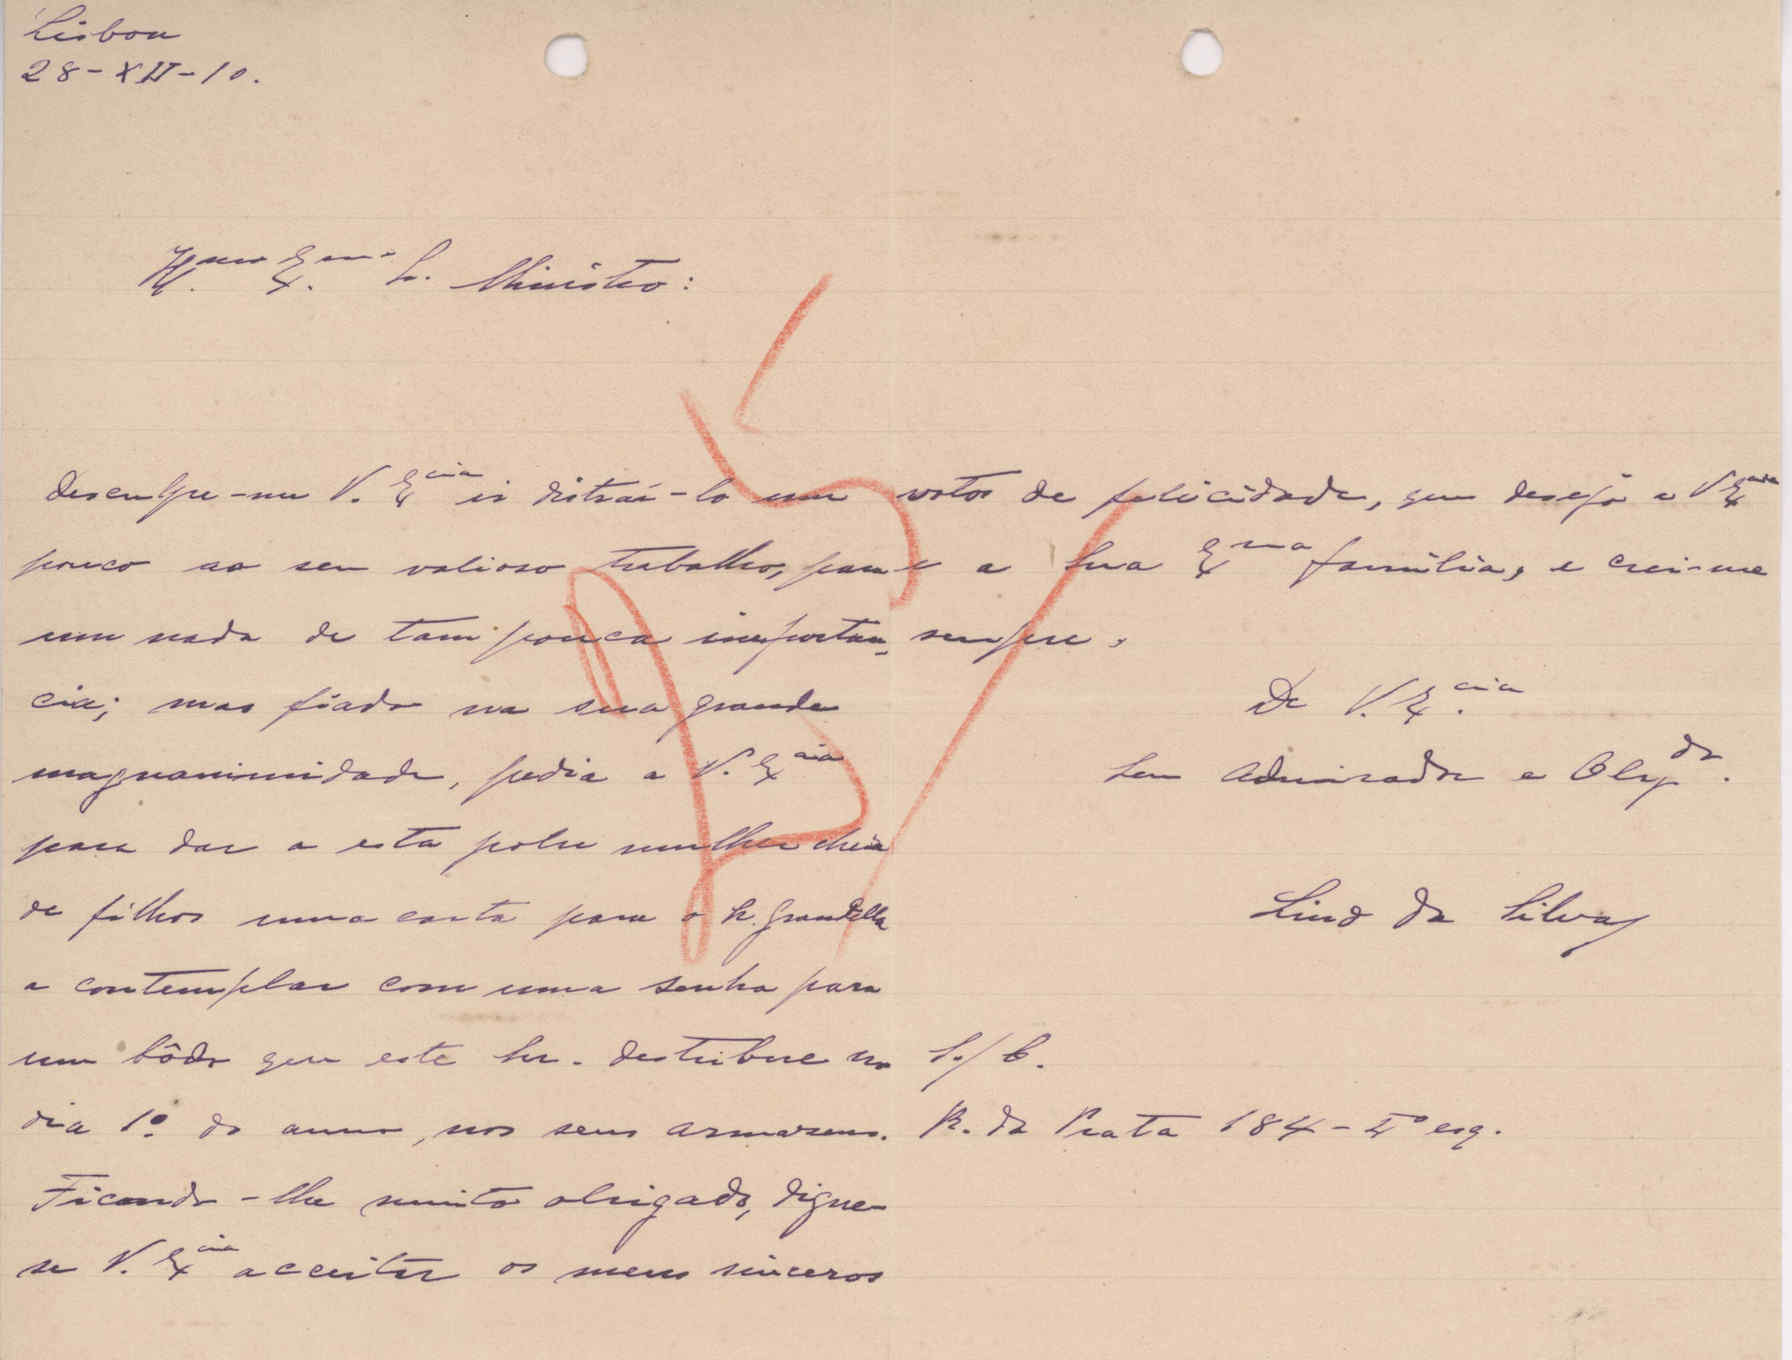 Lisboa
28-XII-10.
Ill.mo Ex.mo Sr. Ministro:
Desculpe-me V. Ex.cia ir distraí-lo um
pouco ao seu valioso trabalho, para
um nada de tam pouca importan-
cia; mas fiado na sua grande
magnanimidade, pedia a V. Ex.cia
para dar a esta pobre mulher cheia
de filhos uma carta para o Sr. Grandella
a contemplar com uma senha para
um bôdo que este Sr. destribue no
dia 1º do anno, nos seus armazens.
Ficando-lhe muito obrigado, digne-
se V. Ex.cia acceitar os meus sinceros
votos de felicidade, que desejo a V Ex.cia
e a Sua Ex.ma familia, e crei-me
sempre,
De V. Ex.cia
Seu Admirador e Obg.do.
Lino da Silva
S./C.
R. da Prata 184-4º esq.